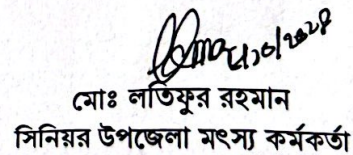 মোঃ লতিফুর রহমান
সিনিয়র উপজেলা মৎস্য কর্মকর্তা